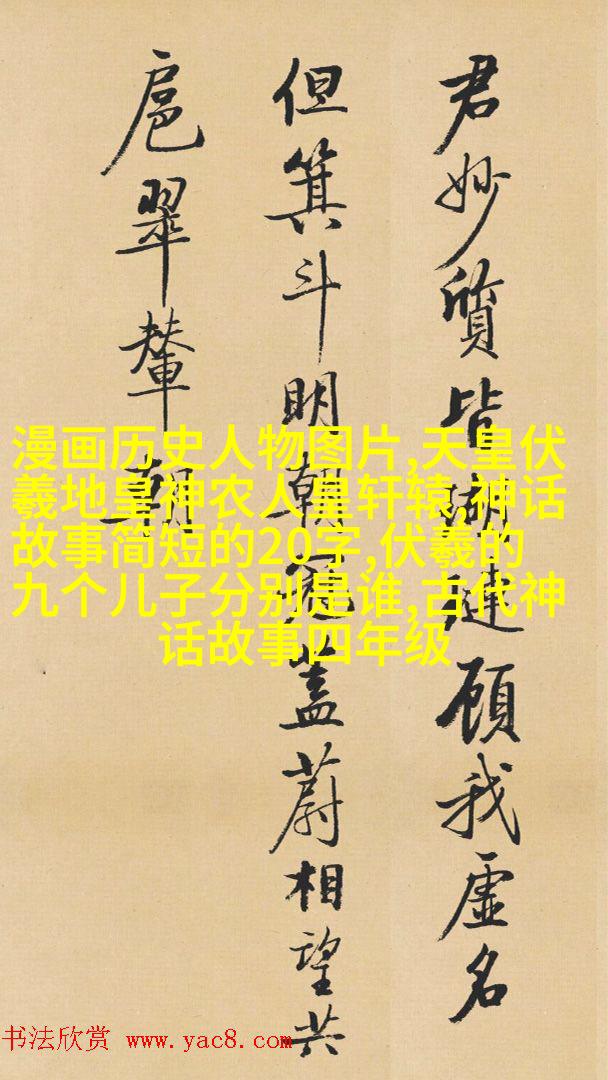 君妙質皆瑚璉顧我虛名
但箕斗明朝冠蓋蔚相望共
扈翠輦朝
漫画历史人物图片,天皇伏
羲地皇神农人皇轩辕,神话
故事简短的20字,伏羲的
九个儿子分别是谁,古代神
话故事四年级
书法欣赏 www.yac8.com